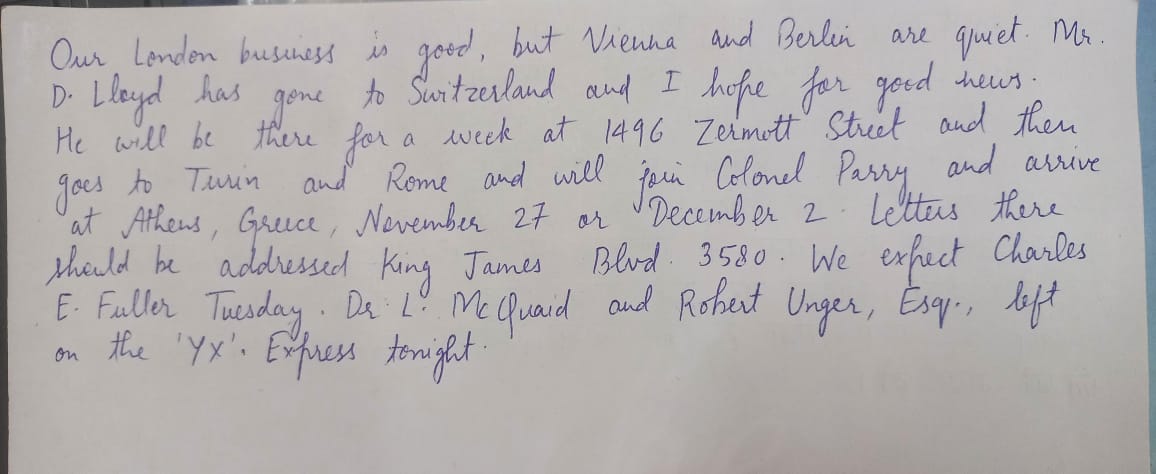 Our London business is good, but Vienna and Berlin are quiet. Mr.
D. Lloyd has gone to Switzerland and I hope for good news.
He will be there for a week at 1496 Zermott Street and then
goes to Turin and Rome and will join Colonel Parry and arrive
at Athens, Greece, November 27 or December 2. Letters there
should be addressed King James Blvd. 3580. We expect Charles
E. Fuller Tuesday. Dr. L. McQuaid and Robert Unger, Esq., left
on the 'YX'. Express tonight.